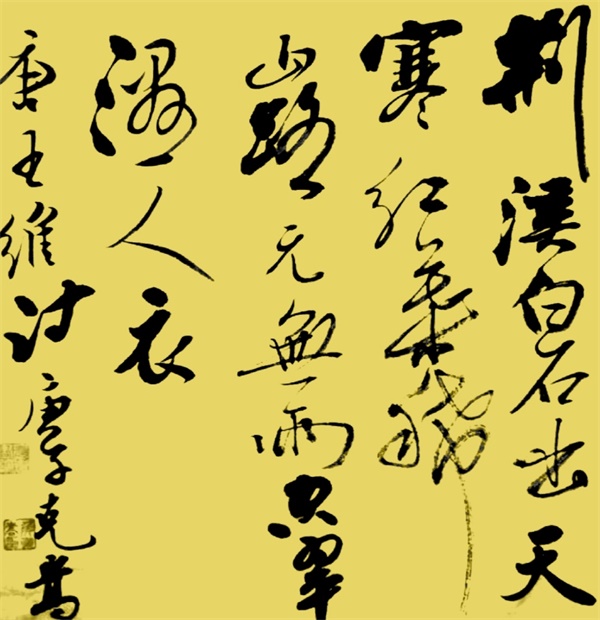 荆溪白石出天
寒紅葉稀
山路元無雨空翠
濕人衣
唐王維詩 庚子克